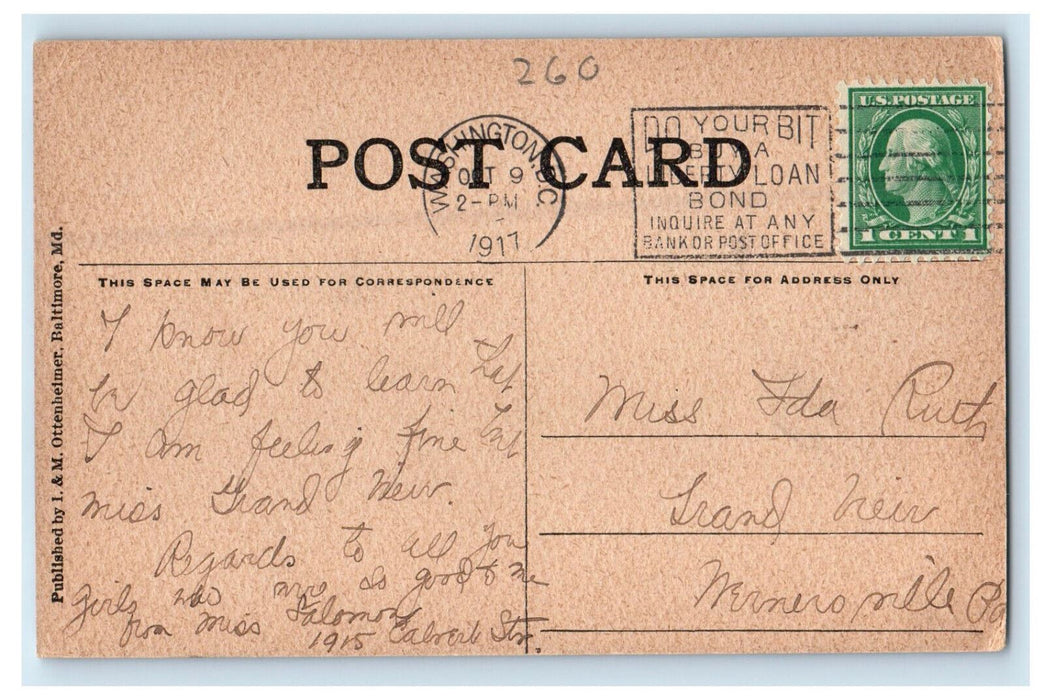 260
POST CARD
WASHINGTON, D.C.
OCT 9
2-PM
1917
DO YOUR BIT
BUY A
LIBERTY LOAN
BOND
INQUIRE AT ANY
BANK OR POST OFFICE
U.S. POSTAGE
1 CENT 1
THIS SPACE MAY BE USED FOR CORRESPONDENCE
THIS SPACE FOR ADDRESS ONLY
Published by I. & M. Ottenheimer, Baltimore, Md.
I know you will
be glad to learn that
I am feeling fine but
miss Grand View.
Regards to all you
girls was so good to me
from Miss Salomon
1915 Calvert Str.
Miss Ida Ruth
Grand View
Wernersville Pa